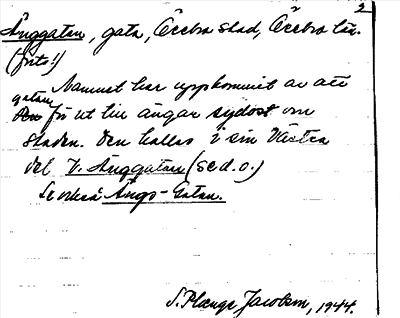 2
Änggatan, gata, Örebro stad, Örebro län.
(forts!)
Namnet har uppkommit av att
gatan
för ut till ängar sydost om
staden. Den kallas i sin Västra
del V. Änggatan (se d. o.)
Se också Ängs-Gatan.
S. Plænge Jacobson, 1944.